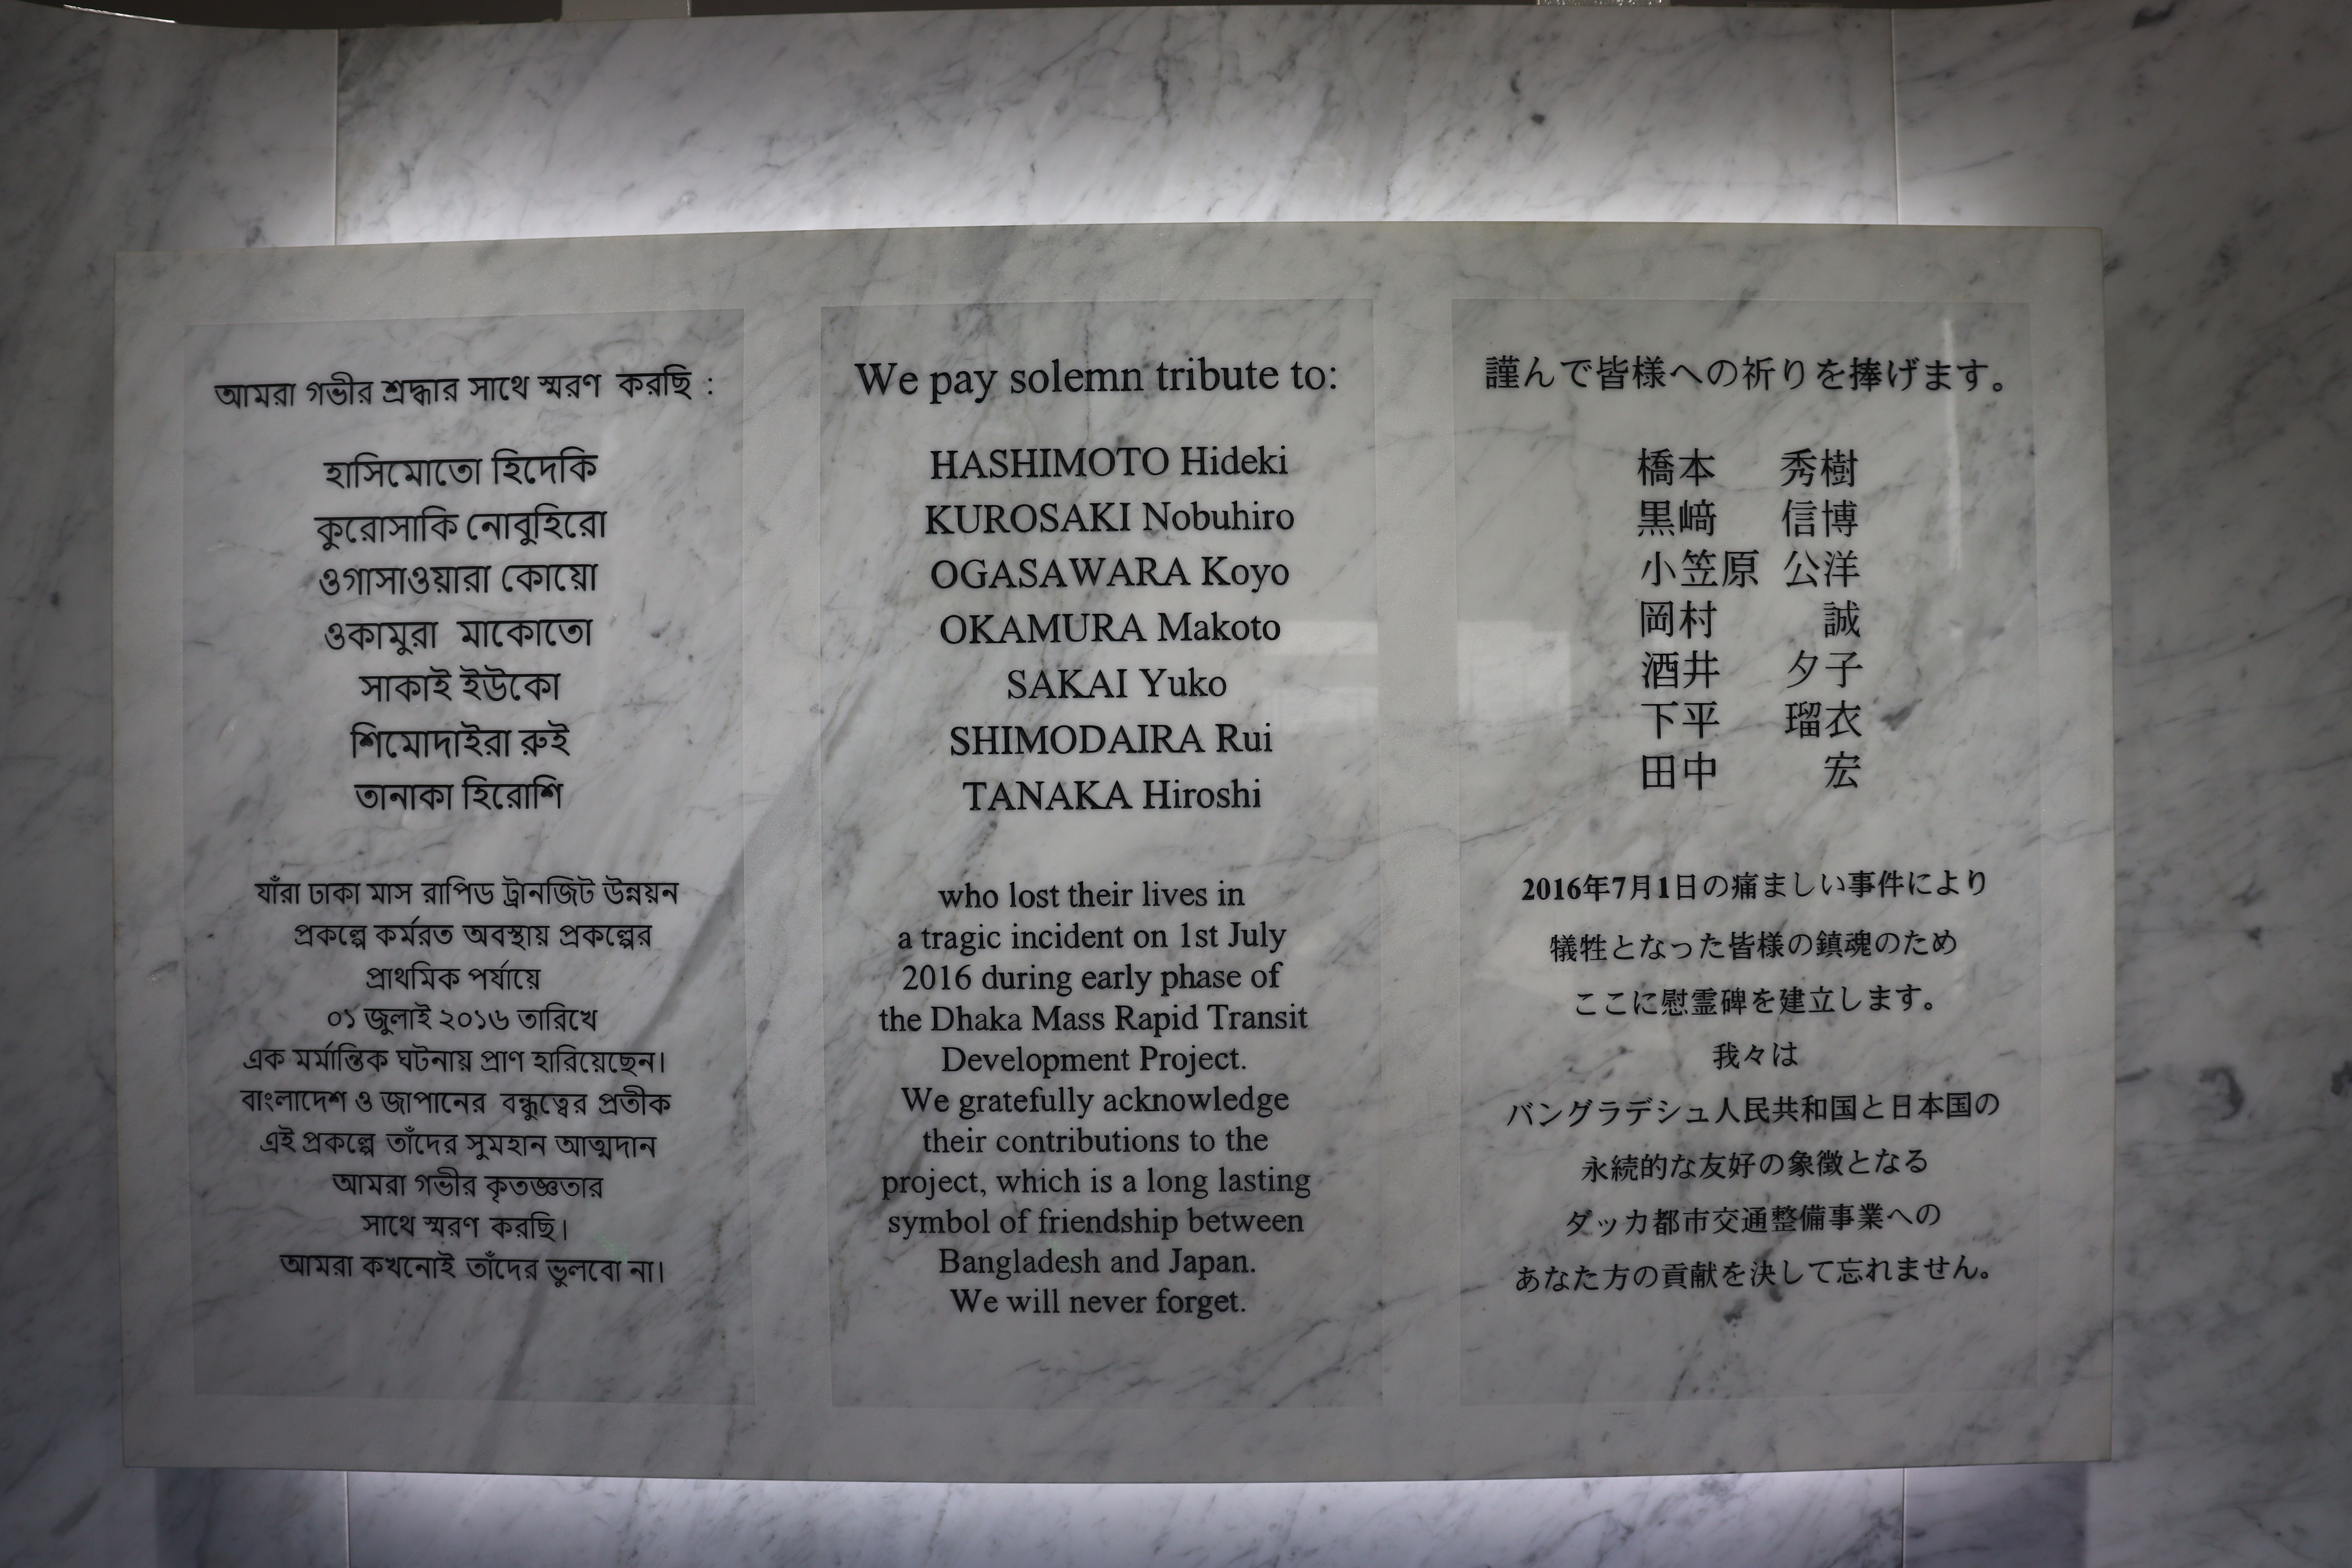 আমরা গভীর শ্রদ্ধার সাথে স্মরণ করছি :
হাসিমোতো হিদেকি
কুরোসাকি নোবুহিরো
ওগাসাওয়ারা কোয়ো
ওকামুরা মাকোতো
সাকাই ইউকো
শিমোদাইরা রুই
তানাকা হিরোশি
যাঁরা ঢাকা মাস রাপিড ট্রানজিট উন্নয়ন
প্রকল্পে কর্মরত অবস্থায় প্রকল্পের
প্রাথমিক পর্যায়ে
০১ জুলাই ২০১৬ তারিখে
এক মর্মান্তিক ঘটনায় প্রাণ হারিয়েছেন।
বাংলাদেশ ও জাপানের বন্ধুত্বের প্রতীক
এই প্রকল্পে তাঁদের সুমহান আত্মদান
আমরা গভীর কৃতজ্ঞতার
সাথে স্মরণ করছি।
আমরা কখনোই তাঁদের ভুলবো না।
We pay solemn tribute to:
HASHIMOTO Hideki
KUROSAKI Nobuhiro
OGASAWARA Koyo
OKAMURA Makoto
SAKAI Yuko
SHIMODAIRA Rui
TANAKA Hiroshi
who lost their lives in
a tragic incident on 1st July
2016 during early phase of
the Dhaka Mass Rapid Transit
Development Project.
We gratefully acknowledge
their contributions to the
project, which is a long lasting
symbol of friendship between
Bangladesh and Japan.
We will never forget.
謹んで皆様への祈りを捧げます。
橋本 秀樹
黒﨑 信博
小笠原 公洋
岡村 誠
酒井 夕子
下平 瑠衣
田中 宏
2016年7月1日の痛ましい事件により
犠牲となった皆様の鎮魂のため
ここに慰霊碑を建立します。
我々は
バングラデシュ人民共和国と日本国の
永続的な友好の象徴となる
ダッカ都市交通整備事業への
あなた方の貢献を決して忘れません。